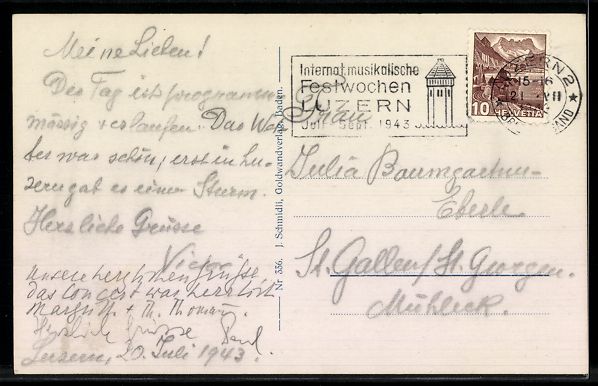 Meine Lieben!
Der Tag ist programm
mässig verlaufen. Das Wet
ter was schön, erst in Lu-
zern gab es einen Sturm.
Herzliche Grüsse
Unsere herzlichen Grüsse
das Concert war herrlich
Margrit + Th. Thoman
Herzliche Grüsse Paul.
Luzern, 20. Juli 1943.
Nr 336. J. Schmidli, Goldwandverlag, Baden.
Internat. musikalische
Festwochen
LUZERN
Juli - Sept. 1943
LUZERN 2
15-16
21. VII
10 HELVETIA
Frau
Julia Baumgartner-
Eberle
St. Gallen/St. Georgen.
Mühleck.